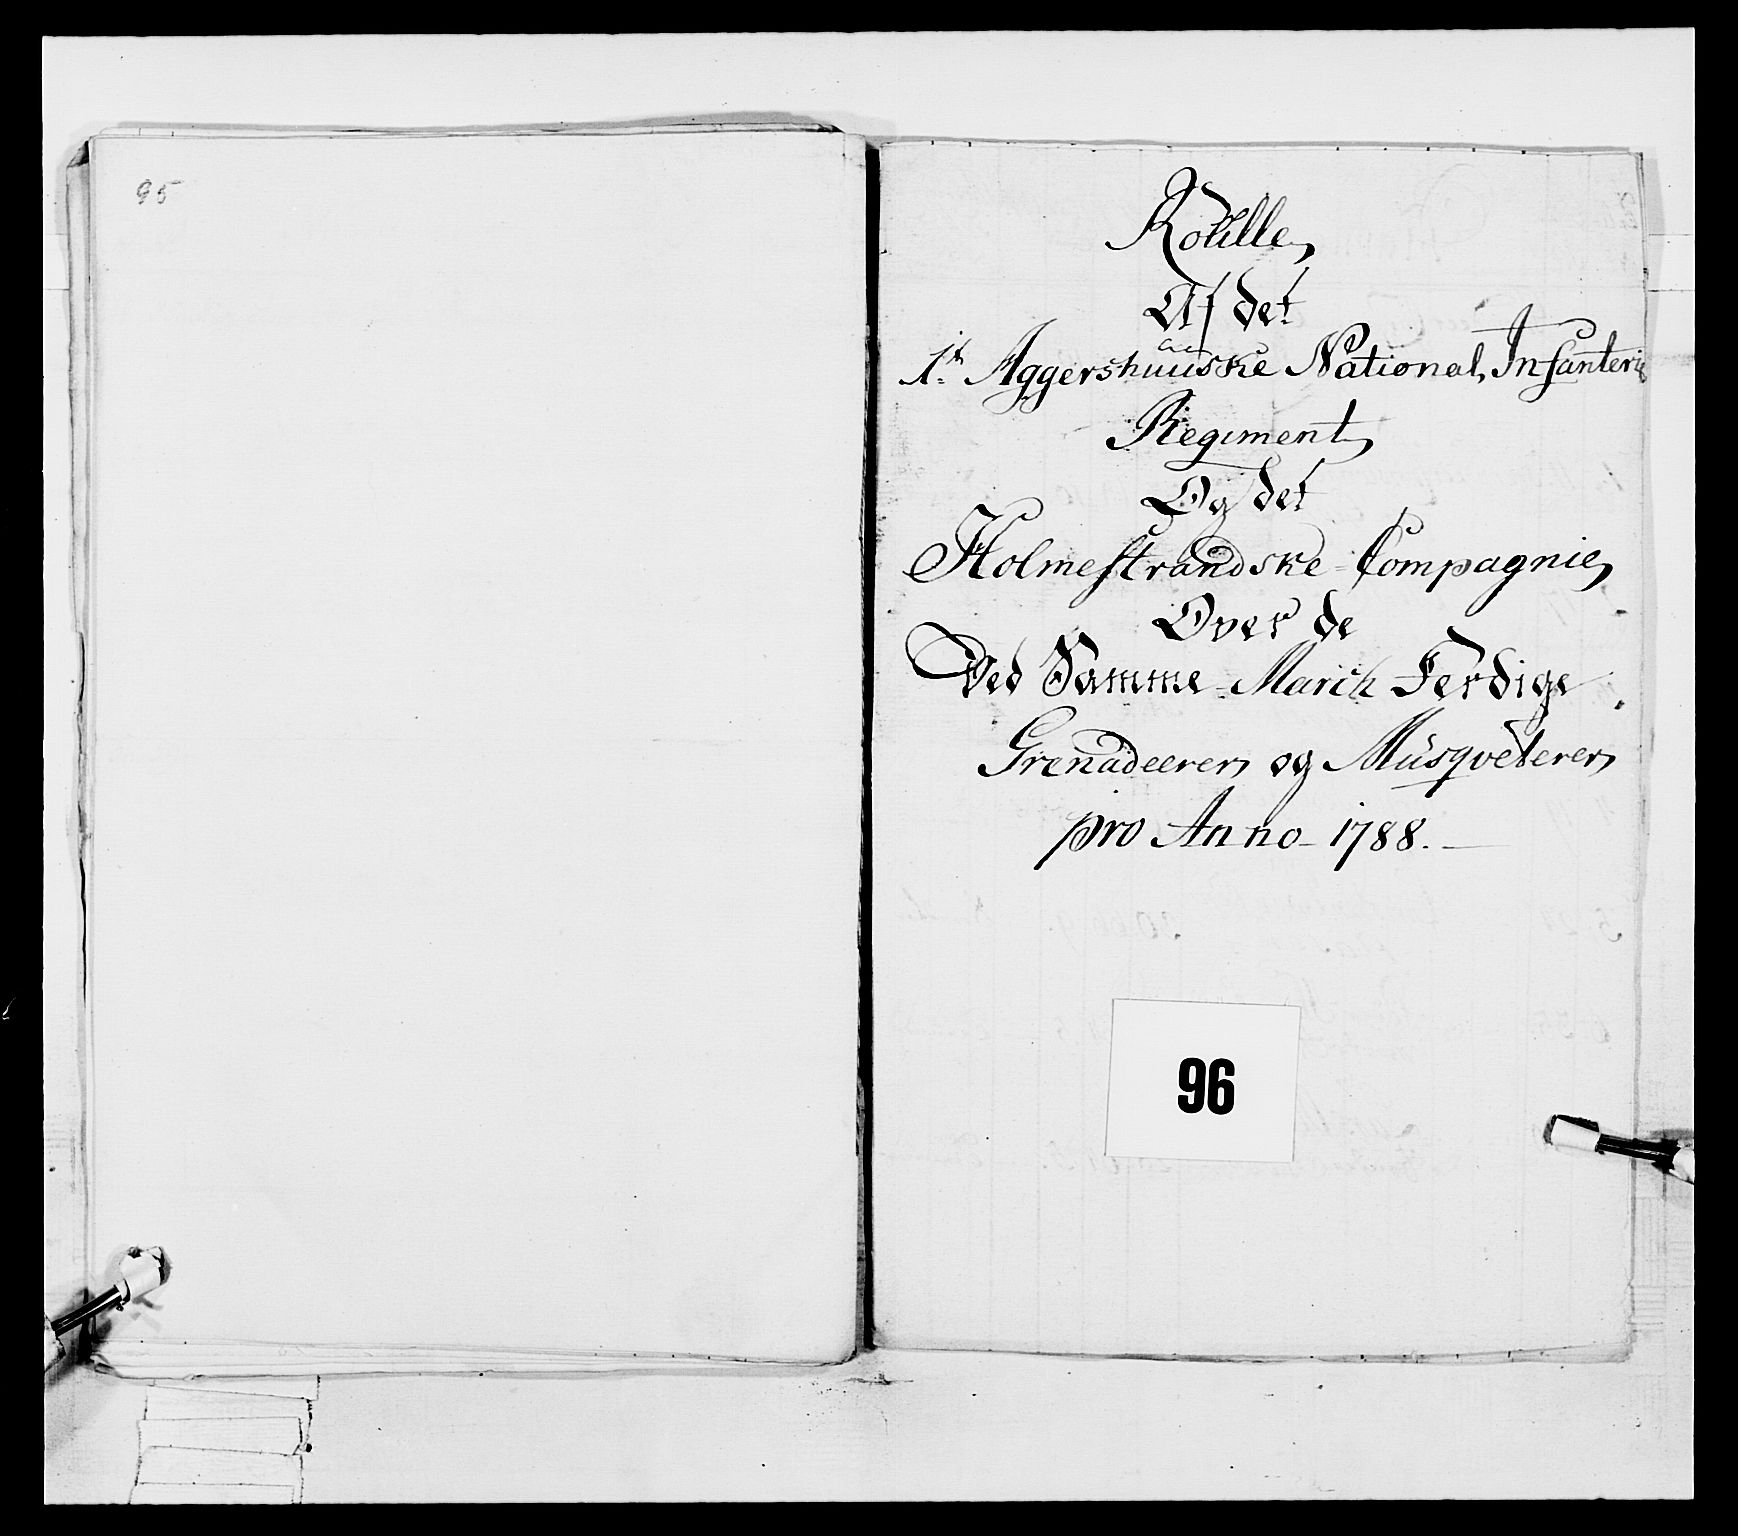 95
Roulle
Af det
1te Aggershuuske National Infanterie
Regiment
Og det
Holmestrandske Compagnie
Over de
Ved Samme March Ferdige
Grenadeerer og Musqveterer
pro Anno 1788.
96